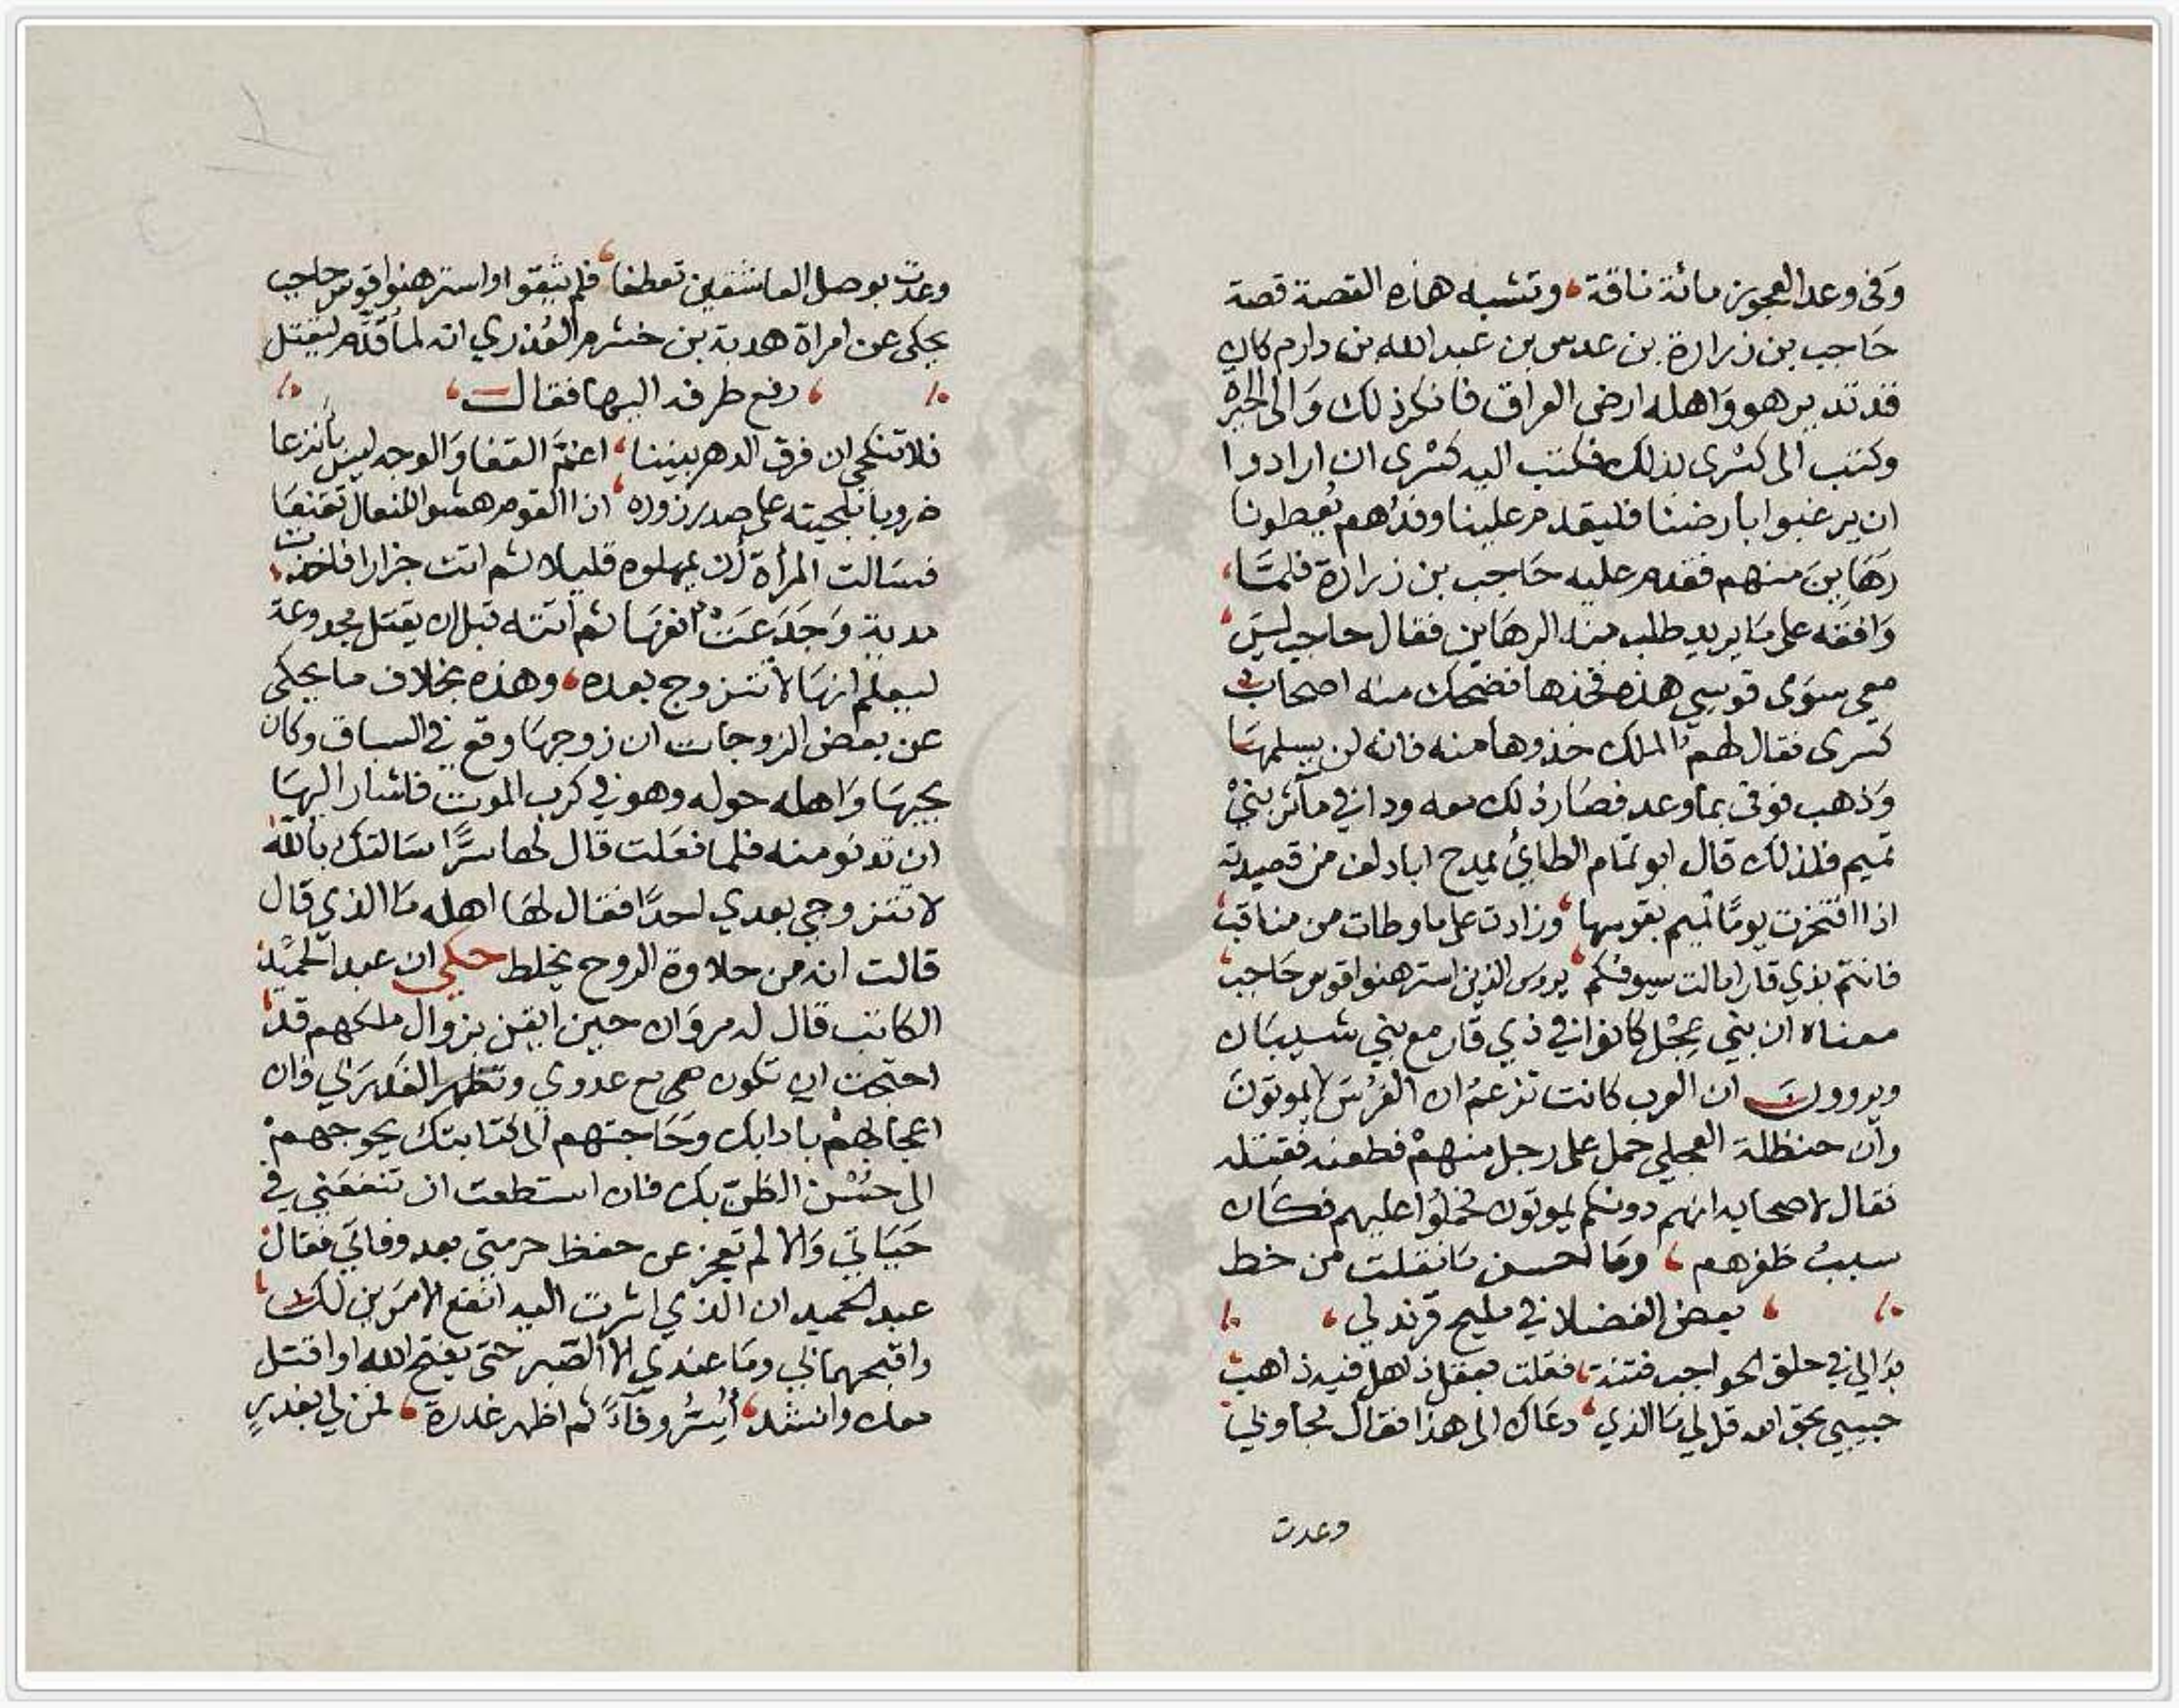 وفى وعد العجوز مائة ناقة، وتشبه هذه القصة قصة
حاجب بن زرارة بن عدس بن عبد الله بن دارم كان
قد تدير هو وأهله ارض العراق فانكر ذلك والى الحيرة
وكتب الى كسرى بذلك فكتب اليه كسرى ان ارادوا
ان يرغبوا بأرضنا فليقدم علينا وفداهم يعطونا
رهاين منهم فقدم عليه حاجب بن زرارة فلما
وافقه على ما يريد طلب منه الرهاين فقال حاجب ليس
معي سوى قوسي هذه فخذها فضحك منه اصحاب
كسرى فقال لهم الملك خذوها منه فانه لن يسلمها
وذهب فوفى بما وعد فصار ذلك معه ودا في مآثر بني
تميم فلذلك قال ابو تمام الطائي يمدح ابادلف من قصيدته
اذا افتخرت يوما تميم بقوسها، وزادت على ما وطات من مناقب
فانتم بذي قار امالت سيوفكم، يروس الذين استرهنوا قوس حاجب
معناه ان بني عجل كانوا في ذي قار مع بني شيبان
ويروون ان العرب كانت تزعم ان الفرس لا يموتون
وان حنظلة العجلي حمل على رجل منهم فطعنه فقتله
فقال لاصحابه انهم دونكم يموتون فحملوا عليهم فكان
سبب ظفرهم، وما احسن ما نقلت من خط
بعض الفضلا في مليح قرندلي،
بدا لي في حلق الحواجب فتنة، فقلت بعقل ذاهل فيه ذاهب
حبيبي بحق الله قل لي ما الذي، دعاك الى هذا فقال مجاوبي
وعدت
وعدت بوصل العاشقين تعطفا، فلم يثقوا او استرهنوا قوس حاجب
يحكى عن امراة هدبة بن خشرم العذري انه لما قدم ليقتل
، رفع طرفه اليها فقال،
فلا تنكحي ان فرق الدهر بيننا، اغم القفا والوجه ليس بأنزعا
ضروبا بلحيته على صدر زوره، اذا القوم هشوا للفعال تقنعا
فسالت المرأة أن يمهلوه قليلا ثم اتت جزارا فاخذت
مدية وجدعت انفها ثم أتته قبل ان يقتل مجدوعة
ليعلم انها لا تتزوج بعده، وهذه بخلاف ما يحكى
عن بعض الزوجات ان زوجها وقع في السباق وكان
يحبها وأهله حوله وهو في كرب الموت فاشار اليها
ان تدنو منه فلما فعلت قال لها سرا سالتك بالله
لا تتزوجي بعدي احدا فقال لها اهله ما الذي قال
قالت انه من حلاوة الروح يخلط حكي ان عبد الحميد
الكاتب قال له مروان حين ايقن بزوال ملكهم قد
احتجت ان تكون مع عدوي وتظهر الغدر لي فان
اعجابهم بادابك وحاجتهم الى كتابتك يحوجهم
الى حسن الظن بك فان استطعت ان تنفعني في
حياتي والا لم تعجز عن حفظ حرمتي بعد وفاتي فقال
عبد الحميد ان الذي اشرت اليه انفع الامرين لك
واقبحهما لي وما عندي الا الصبر حتى يفتح الله او اقتل
معك وانشد، أيسر وفاء ثم اظهر غدرة، فمن لي بعذر